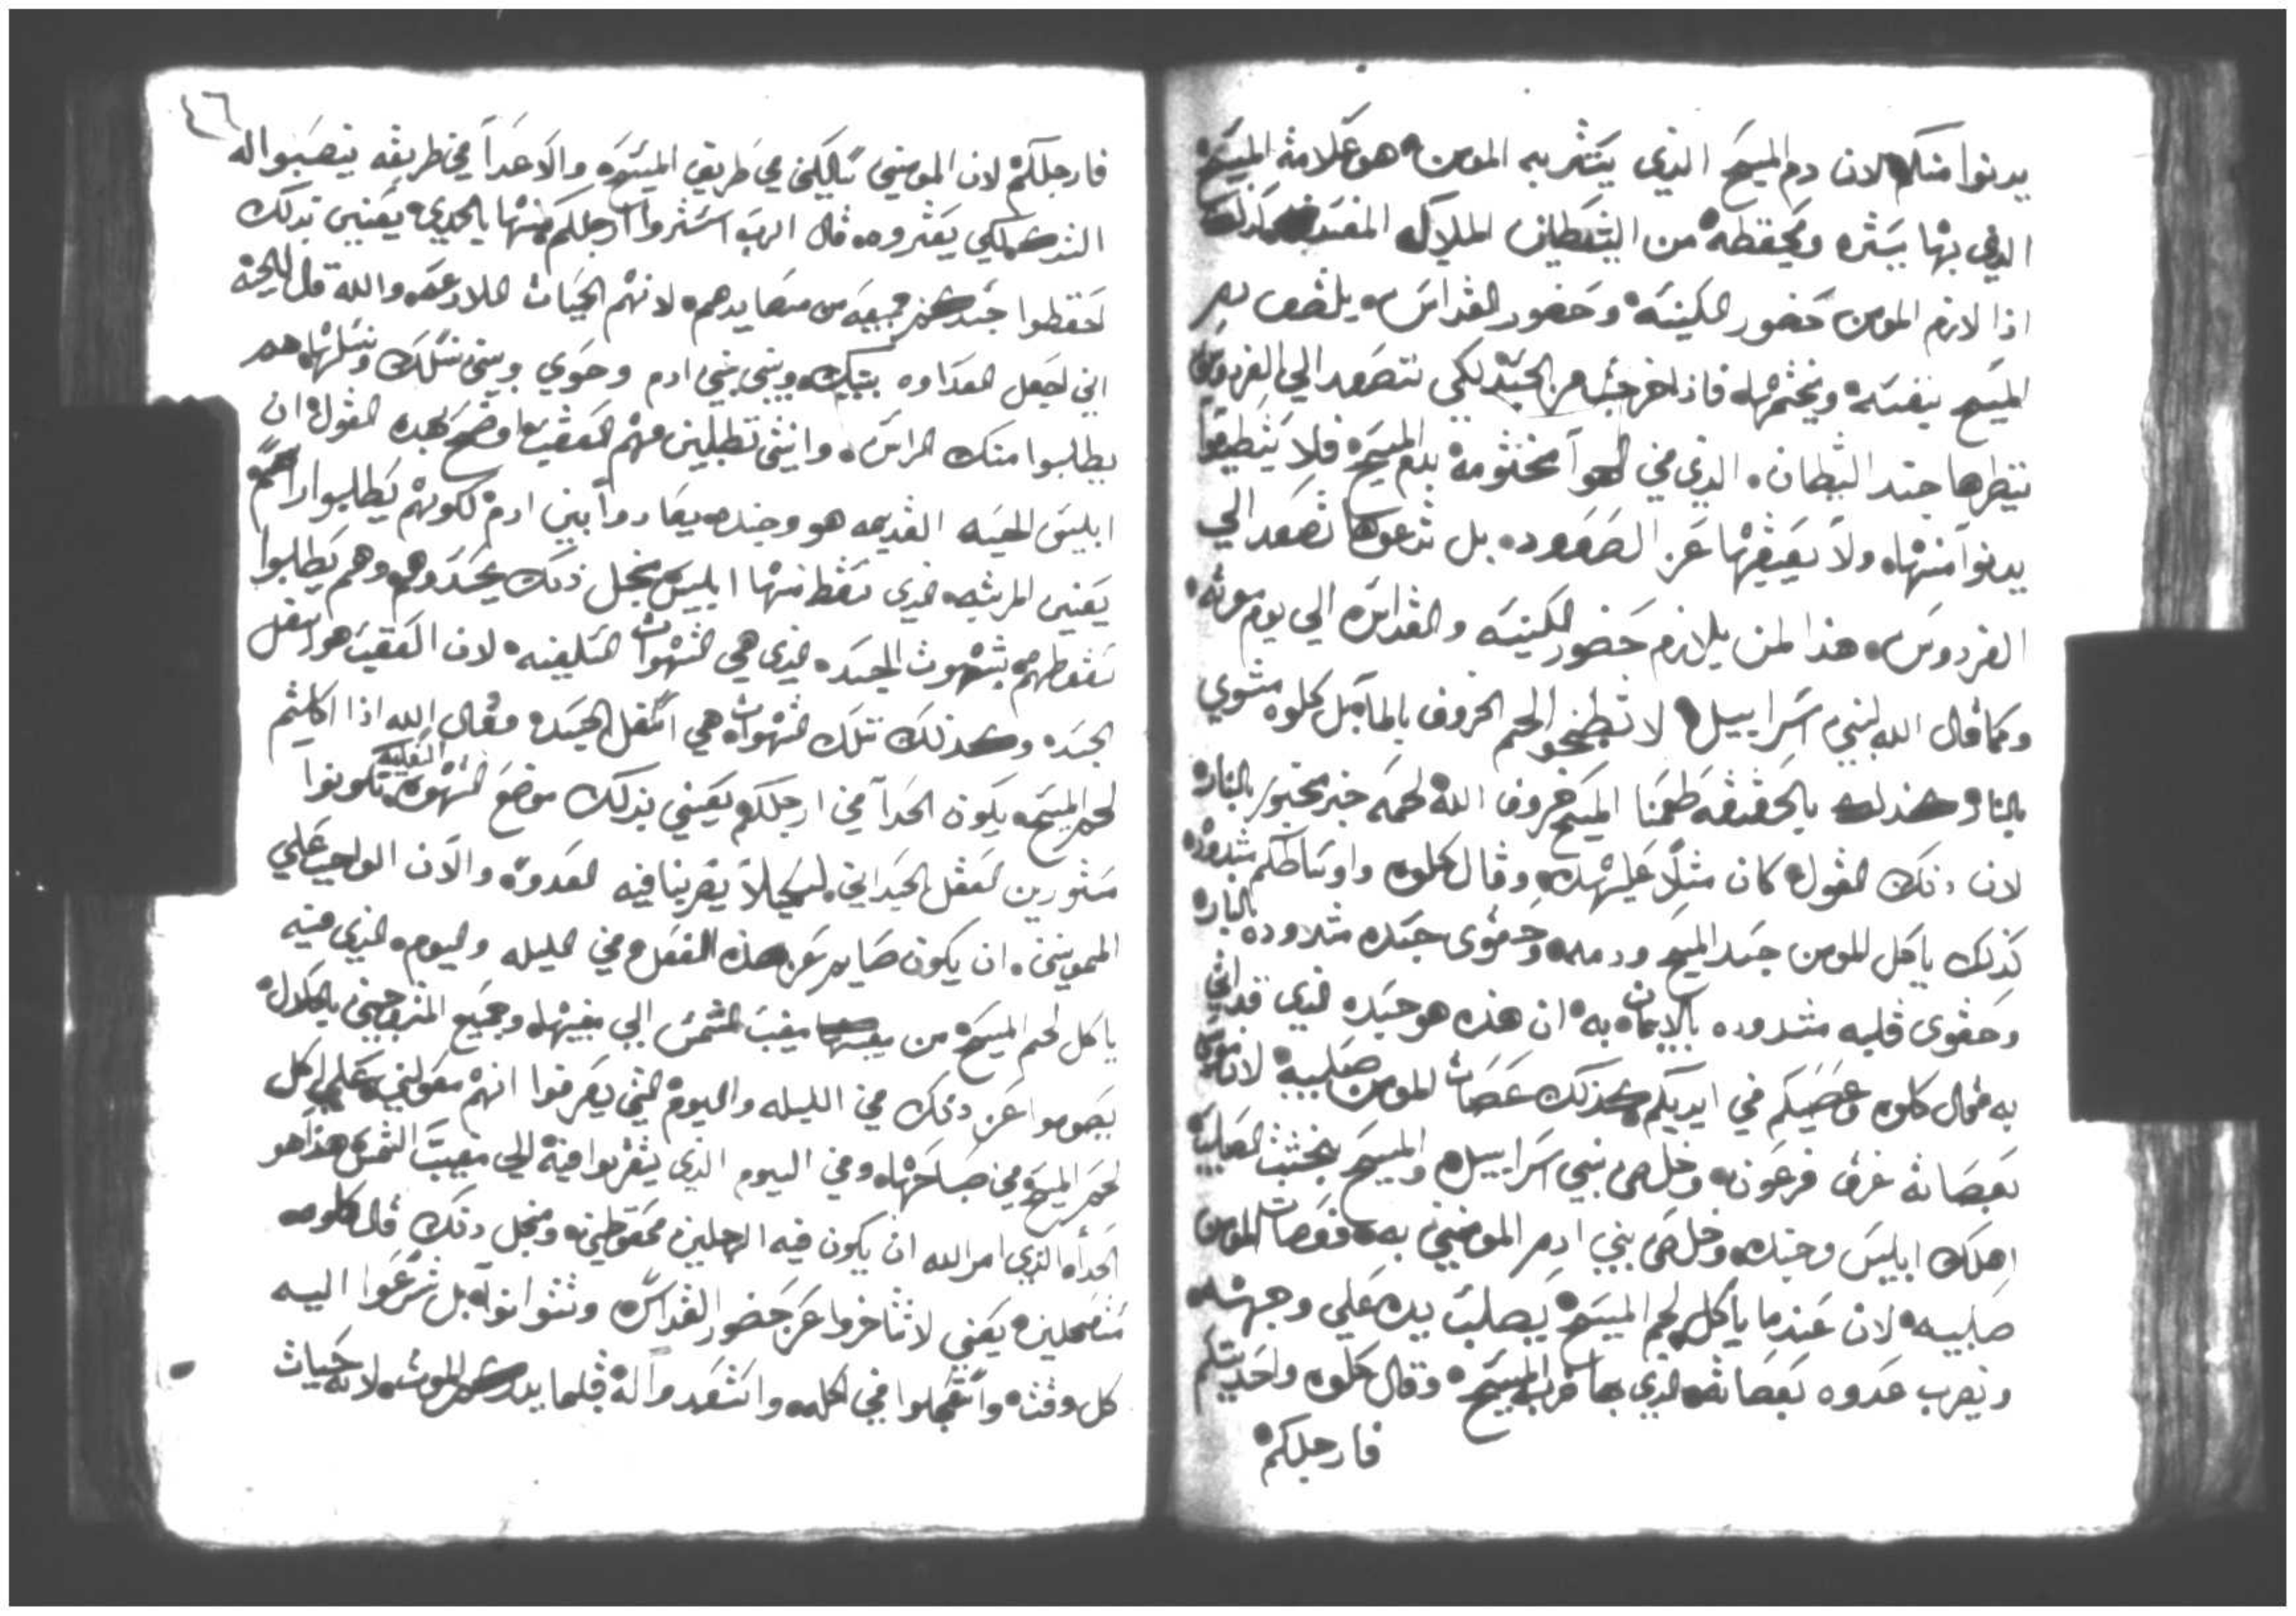 يدنوا منكم لان دم المسيح الذي يتشر به المومن هو علامة المسيح
الذي بها يستره ويحفظه من الشيطان الملاك المفسد كذلك
اذا لازم المومن حضور الكنيسه وحضور القداس يلتصق به
المسيح بنفسه ويختمها فاذا خرجت من الجسد لكي تتصعد الي الفردوس
تنظرها جند الشيطان الذي في الهوآ مختومه بدم المسيح فلا يتطيعوا
يدنوا منها ولا يعيقها عن الصعود بل تدعوها تصعد الي
الفردوس هذا لمن يلازم حضور الكنيسه والقداس الي يوم موته
وكما قال الله لبني اسراييل لا تطبخوا لحم الخروف بالمآ بل كلوه مشوي
بالنار كذلك بالحقيقه طعمنا المسيح خروف الله لحمه خبز مخبوز بالنار
لان ذلك القول كان مثلا علي هذه وقال كلوه واوساطكم مشدوده
كذلك ياكل المومن جسد المسيح ودمه وحقوي جسده مشدوده بالنار
وحقوي قلبه مشدوده بالايمان به ان هذه هو جسده الذي قد اتي
به فقال كلوه وعصيكم في ايديكم كذلك عصات المومن صليبه لان موسي
بعصاته غرق فرعون وخلص بني اسراييل والمسيح بخشبت الصليب
اهلك ابليس وجنده وخلص بني ادم المومنين به فعصات المومن
صليبه لان عندما ياكل لحم المسيح يصلب بيده علي وجهه
ويضرب عدوه بعصاته الذي بها ضرب المسيح وقال كلوه واحديتكم
فارجلكم
٤٦
فارجلكم لان المومنين سالكين في طريق المسيح والاعدآ في طريقه ينصبوا له
الشرك لكي يعثروه قال الرب استروا ارجلكم منها بالحدي يعنين بذلك
احفظوا جسدكم جميعه من مصايدهم لانهم الحيات اللادغه والله قال للحيه
اني اجعل العداوه بينك وبين بني ادم وحوي وبين نسلك ونسلها هم
يطالبوا منك الراس وانتي تطلبين منهم العقب اوضح بهده القول ان
ابليس الحيه القديمه هو وجنده يعادوا بين ادم لكونهم يطالبوا راسهم
يعنين المرتبه الذي سقط منها ابليس منجل ذلك يحسدوهم وهم يطلبوا
سقوطهم بشهوت الجسده الذي هي الشهوات السلفيه لان العقب هو اسفل
الجسد وكذلك تلك الشهوات هي اسفل الجسد فقال الله اذا اكلتم
لحم المسيح يكون الحدآ في ارجلكم يعني بذلك موضع الشهوه السفليه تكونوا
مستورين لعقل الجسداني لكيلا يضربنا فيه العدو والان الواجب علي
المومنين ان يكون صايم عن هذه الفعل في الليله واليوم الذي فيه
ياكل لحم المسيح من مغيب الشمس الي مغيبها وجميع المتزوجين بالحلال
يصوموا عن ذلك في الليله واليوم التي يعرفوا انهم معولين علي اكل
لحم المسيح في صباحها وفي اليوم الذي يتقربوا فيه الي مغيب الشمس هذا هو
الحدآ الذي امر الله ان يكون فيه الرجلين محفوظين ومنجل ذلك قال كلوه
متعجلين يعني لا تتاخروا عن حضور القداس وتتوانوا بل تسرعوا اليه
كل وقت واستعجلوا في اكله واستعدوا له قبلما يدرككم الموت لانه حيات